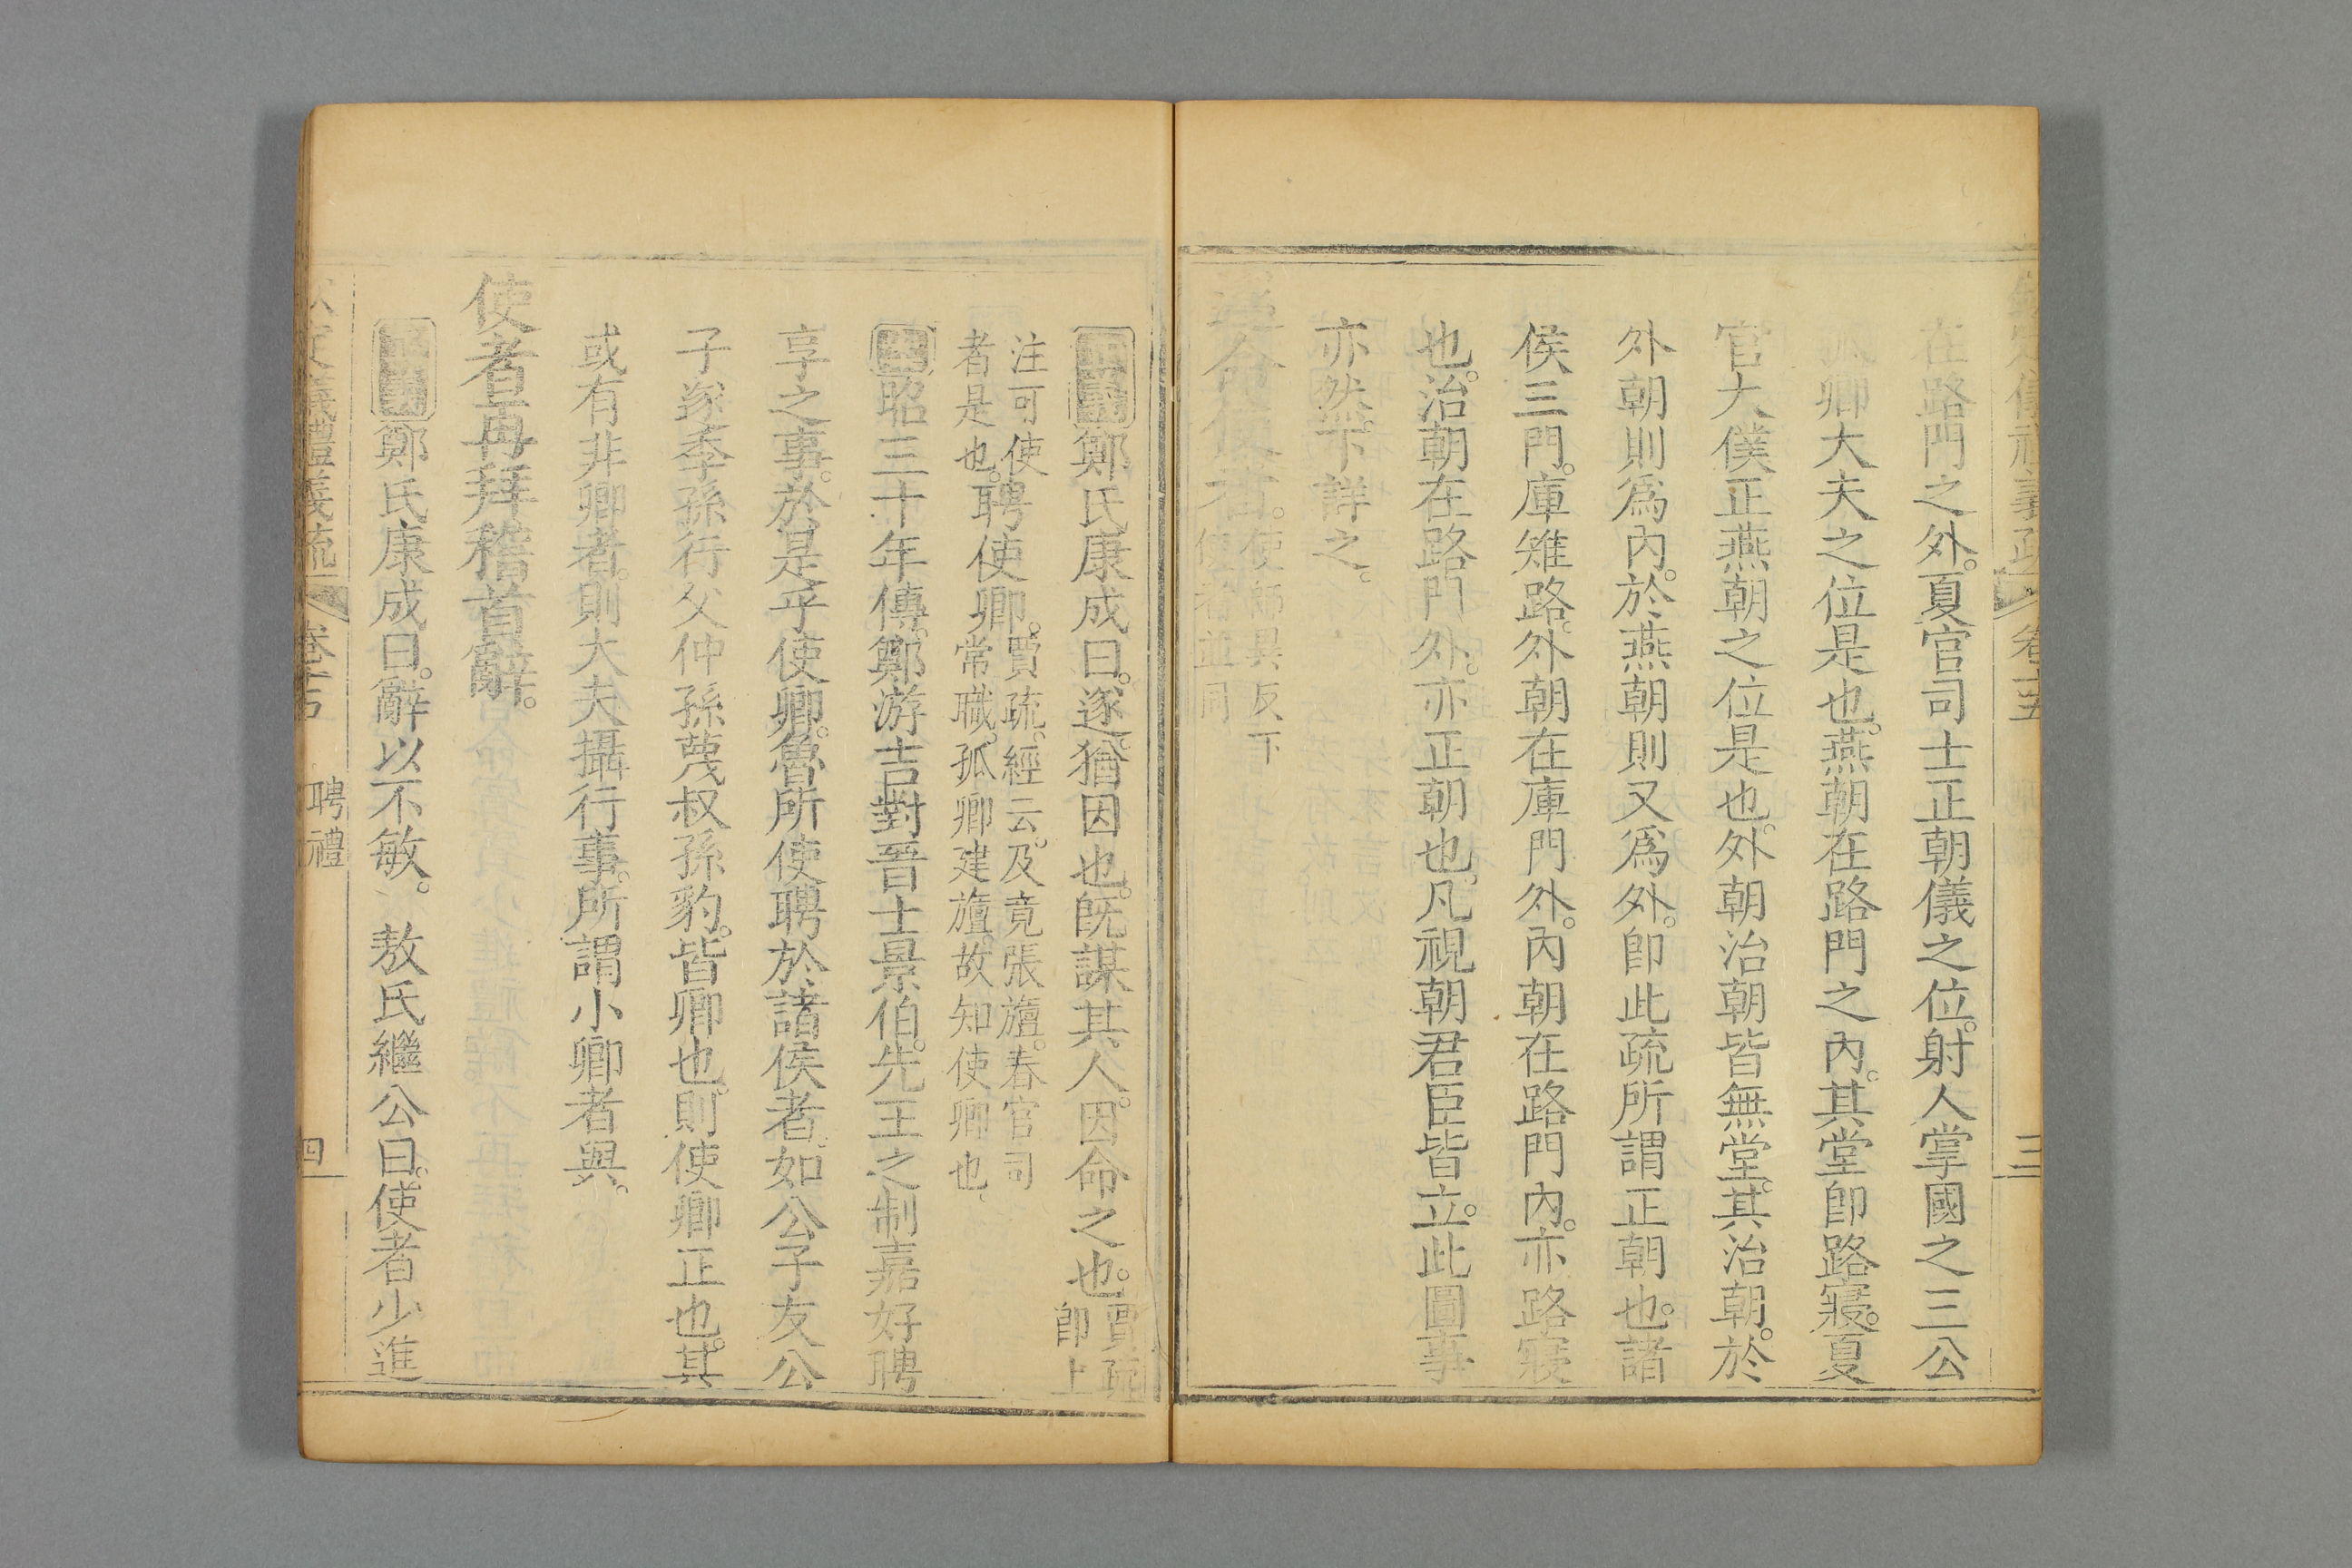 在路門之外。夏官司士正朝儀之位。射人掌國之三公
孤卿大夫之位是也。燕朝在路門之內。其堂卽路寢。夏
官大僕正燕朝之位是也。外朝治朝皆無堂。其治朝。於
外朝則爲內。於燕朝則又爲外。卽此疏所謂正朝也。諸
侯三門。庫雉路。外朝在庫門外。內朝在路門內。亦路寢
也。治朝在路門外。亦正朝也。凡視朝君臣皆立。此圖事
亦然。下詳之。
遂命使者。使師異反下
使者並同
卷十五
三
正義鄭氏康成曰。遂。猶因也。旣謀其人。因命之也。賈疏
卽上
注可使聘
者是也。聘使卿。賈疏。經云。及竟張旜。春官司
常職。孤卿建旜。故知使卿也。
案昭三十年傳。鄭游吉對晉士景伯。先王之制嘉好聘
享之事。於是乎使卿。魯所使聘於諸侯者。如公子友公
子遂季孫行父仲孫蔑叔孫豹。皆卿也。則使卿正也。其
或有非卿者。則大夫攝行事。所謂小卿者與。
使者再拜稽首辭。
正義鄭氏康成曰。辭以不敏。 敖氏繼公曰。使者少進
儀禮義疏
聘禮
四